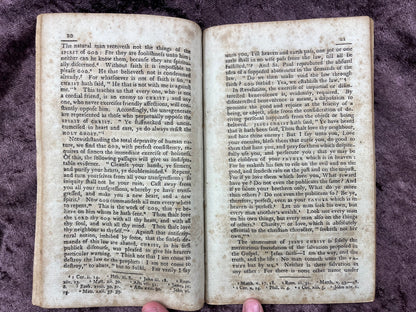 20
The natural man receiveth not the things of the
SPIRIT of GOD: For they are foolishness unto him;
neither can he know them, because they are spiritu-
ally discerned. Without faith it is impossible to
please GOD. He that believeth not is condemned
already. For whatsoever is not of faith is sin.
CHRIST hath said, "He that is not with me is against
me." This teaches us that every one, who is not
a cordial friend, is an enemy to CHRIST; and any
one, who never exercises friendly affections, will con-
stantly oppose him. Accordingly the unregenerate
are represented as those who perpetually oppose the
SPIRIT of GOD. "Ye stiffnecked and uncir-
cumcised in heart and ears, ye do always resist the
HOLY GHOST."
Notwithstanding the total depravity of human na-
ture, we find that GOD, with perfect consistency, re-
quires of sinners the immediate exercise of holiness.
Of this, the following passages give us indisputa-
ble evidence. "Cleanse your hands, ye sinners,
and purify your hearts, ye doubleminded. Repent
and turn yourselves from all your transgressions; so
iniquity shall not be your ruin. Cast away from
you all your transgressions, whereby ye have trans-
gressed, and make you a new heart, and a new
spirit. Now GOD commandeth all men every where
to repent. This is the work of GOD, that ye be-
lieve on him whom he hath sent. Thou shalt love
the LORD thy GOD with all thy heart, and with all
thy soul, and with all thy mind. Thou shalt love
thy neighbour as thyself." Against that antinomian
spirit, indulged by some, by force, that the strict de-
mands of this law are abated, CHRIST, in his first
publick discourse, was pleased to give his hearers
particular warning. "Think not that I am come to
destroy the law or the prophets: I am not come
to destroy, "to abate," but to fulfil. For verily I say
21
unto you, Till heaven and earth pass, one jot or one
tittle shall in no wise pass from the law, till all be
fulfilled." And St. Paul reprobated the absurd
idea of a supposed abatement in the demands of the
law. "Do we then make void the law through
faith? GOD forbid: Yea, we establish the law."
In Revelation, the exercise of impartial or disin-
terested benevolence is evidently required. By
disinterested benevolence is meant, a disposition to
promote the good and rejoice at the felicity of
being, or objects, aside from the consideration of de-
riving personal happiness from the objects so re-
garded. JESUS CHRIST hath said, "Ye have heard
that it hath been said, Thou shalt love thy neighbour,
and hate thine enemy: But I say unto you, Love
your enemies, bless them that curse you, do good to
them that hate you, and pray for them which despite-
fully use you, and persecute you; that ye may be
the children of your FATHER which is in heaven:
For he maketh his sun to rise on the evil and on the
good, and sendeth rain on the just and on the unjust.
For if ye love them which love you, What reward
have ye? Do not even the publicans the same? And
if ye salute your brethren only, What do ye more
than others? Do not even the publicans so? Be ye,
therefore, perfect, even as your FATHER which is in
heaven is perfect. Let no man seek his own, but
every man another's wealth. Look not every man
on his own things, but every man also on the things
of others." Charity, or "love, which is genuine,
seeketh not her own."
The atonement of JESUS CHRIST is surely the
meritorious foundation of the salvation proposed in
the Gospel. "Jesus saith—I am the way, and the
truth, and the life: No man cometh unto the FA-
THER but by me. Neither is there salvation in
any other: For there is none other name under